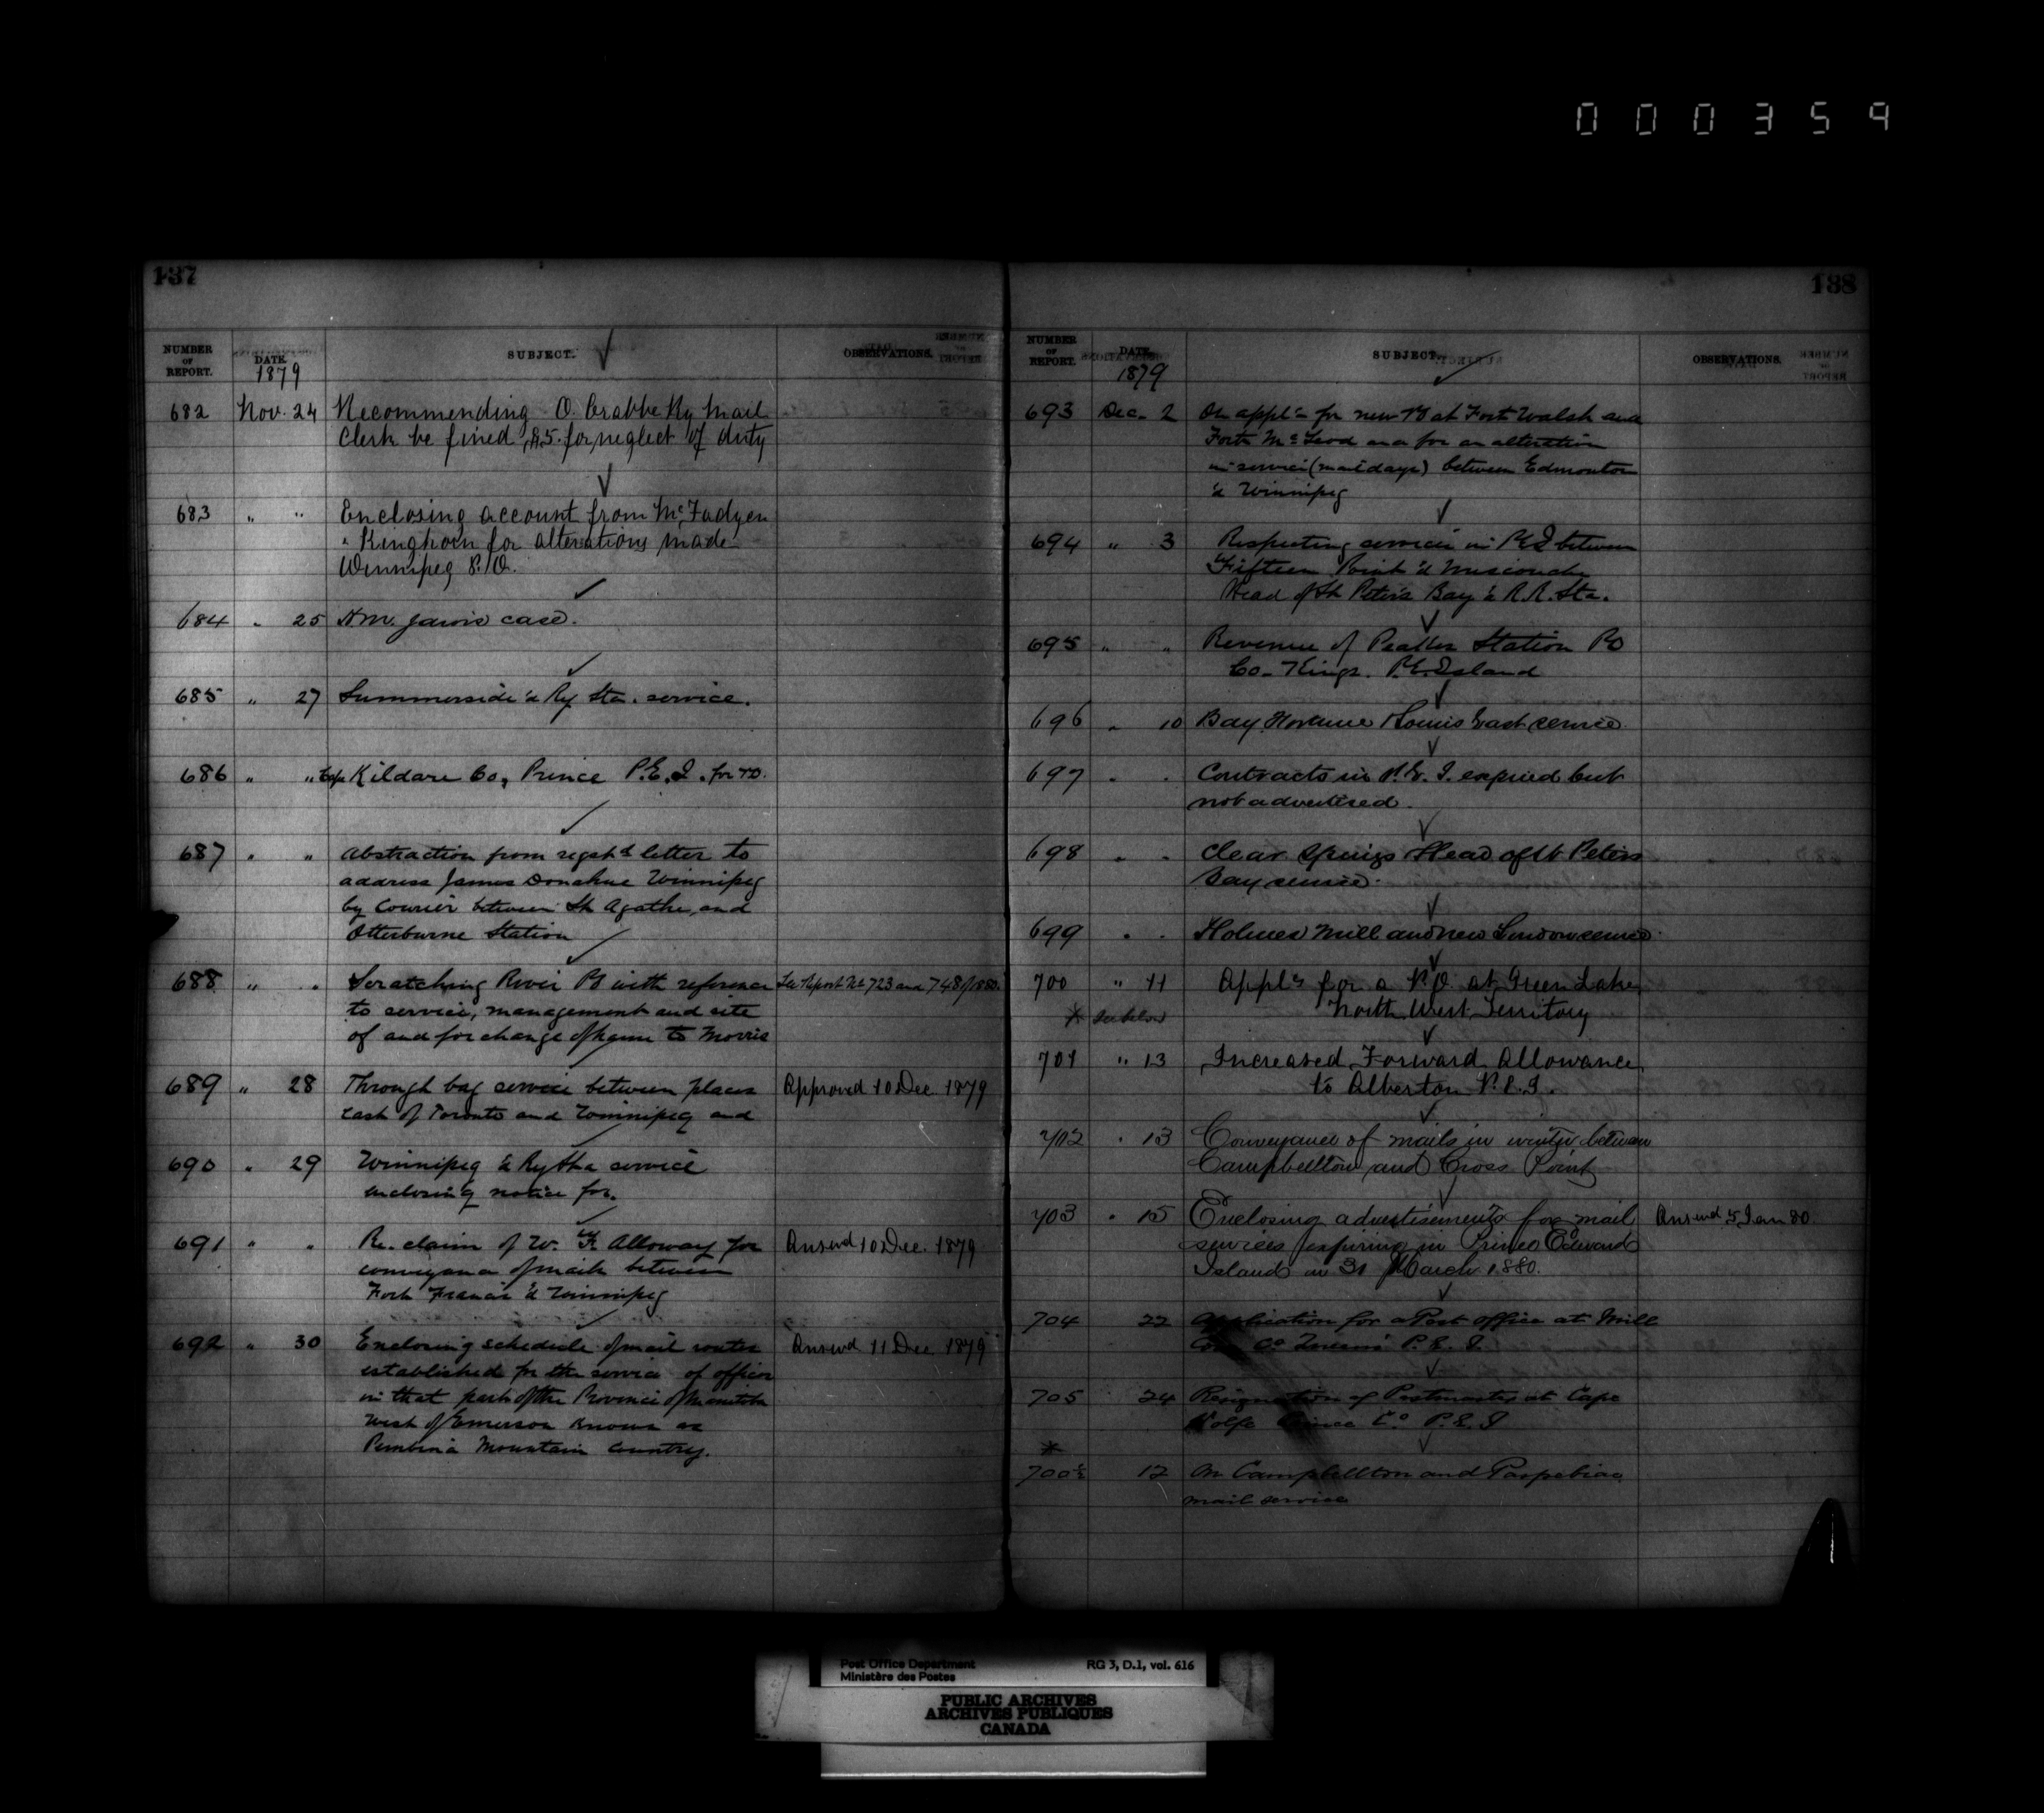 000359
137
NUMBER OF REPORT. DATE. 1879 SUBJECT. OBSERVATIONS.
682 Nov. 24 Recommending O. Crabbe Ry Mail
Clerk be fined $5. for neglect of duty
683 " " Enclosing account from McFadyen
" Kinghorn for alterations made
Winnipeg P.O.
684 " 25 Jarvis case.
685 " 27 Summerside & Ry Sta. service.
686 " " Kildare Co, Prince P.E.I. for
687 " " Abstraction from regstd letter to
address James Donahue Winnipeg
by Courier between St Agathe and
Otterburne Station
688 " " Scratching River PO with reference See Report No 723 and 748/1880.
to service, management and site
of and for change of name to Morris
689 " 28 Through bag service between places Approved 10 Dec. 1879
East of Toronto and Winnipeg and
690 " 29 Winnipeg & Ry Sta service
enclosing notice for.
691 " " Re. claim of W. F. Alloway for Answd 10 Dec. 1879
conveyance of mails between
Fort Francis & Winnipeg
692 " 30 Enclosing schedule of mail routes Answd 11 Dec. 1879
established for the service of offices
in that part of the Province of Manitoba
West of Emerson known as
Pembina Mountain Country.
138
NUMBER OF REPORT. DATE. 1879 SUBJECT. OBSERVATIONS.
693 Dec. 2 On appl'n for new PO at Fort Walsh and
Fort McLeod and for an alteration
in service (mail days) between Edmonton
& Winnipeg
694 " 3 Respecting services in P.E.I between
Fifteen Point & Miscouche
Head of St Peter's Bay & R.R. Sta.
695 " " Revenue of Peakes Station PO
Co- Kings. P.E.Island
696 " 10 Bay Fortune & Souris East service.
697 " " Contracts in P.E.I. expired but
not advertised.
698 " " Clear Springs Head of St Peters
Bay service.
699 " " Holmes Mill and New London service.
700 " 11 Appln for a P.O. at Green Lake
* See below North West Territory
701 " 13 Increased Forward Allowance
to Alberton P.E.I.
702 " 13 Conveyance of mails in winter between
Campbellton and Cross Point
703 " 15 Enclosing advertisements for mail Answd 5 Jan 80.
services expiring in Prince Edward
Island on 31 March 1880.
704 22 Application for a Post office at Mill
Co Queens P.E.I.
705 24 Resignation of Postmaster at Cape
Wolfe Prince Co P.E.I
*
700½ 12 On Campbellton and Paspebiac
mail service
Post Office Department RG 3, D.1, vol. 616
Ministère des Postes
PUBLIC ARCHIVES
ARCHIVES PUBLIQUES
CANADA